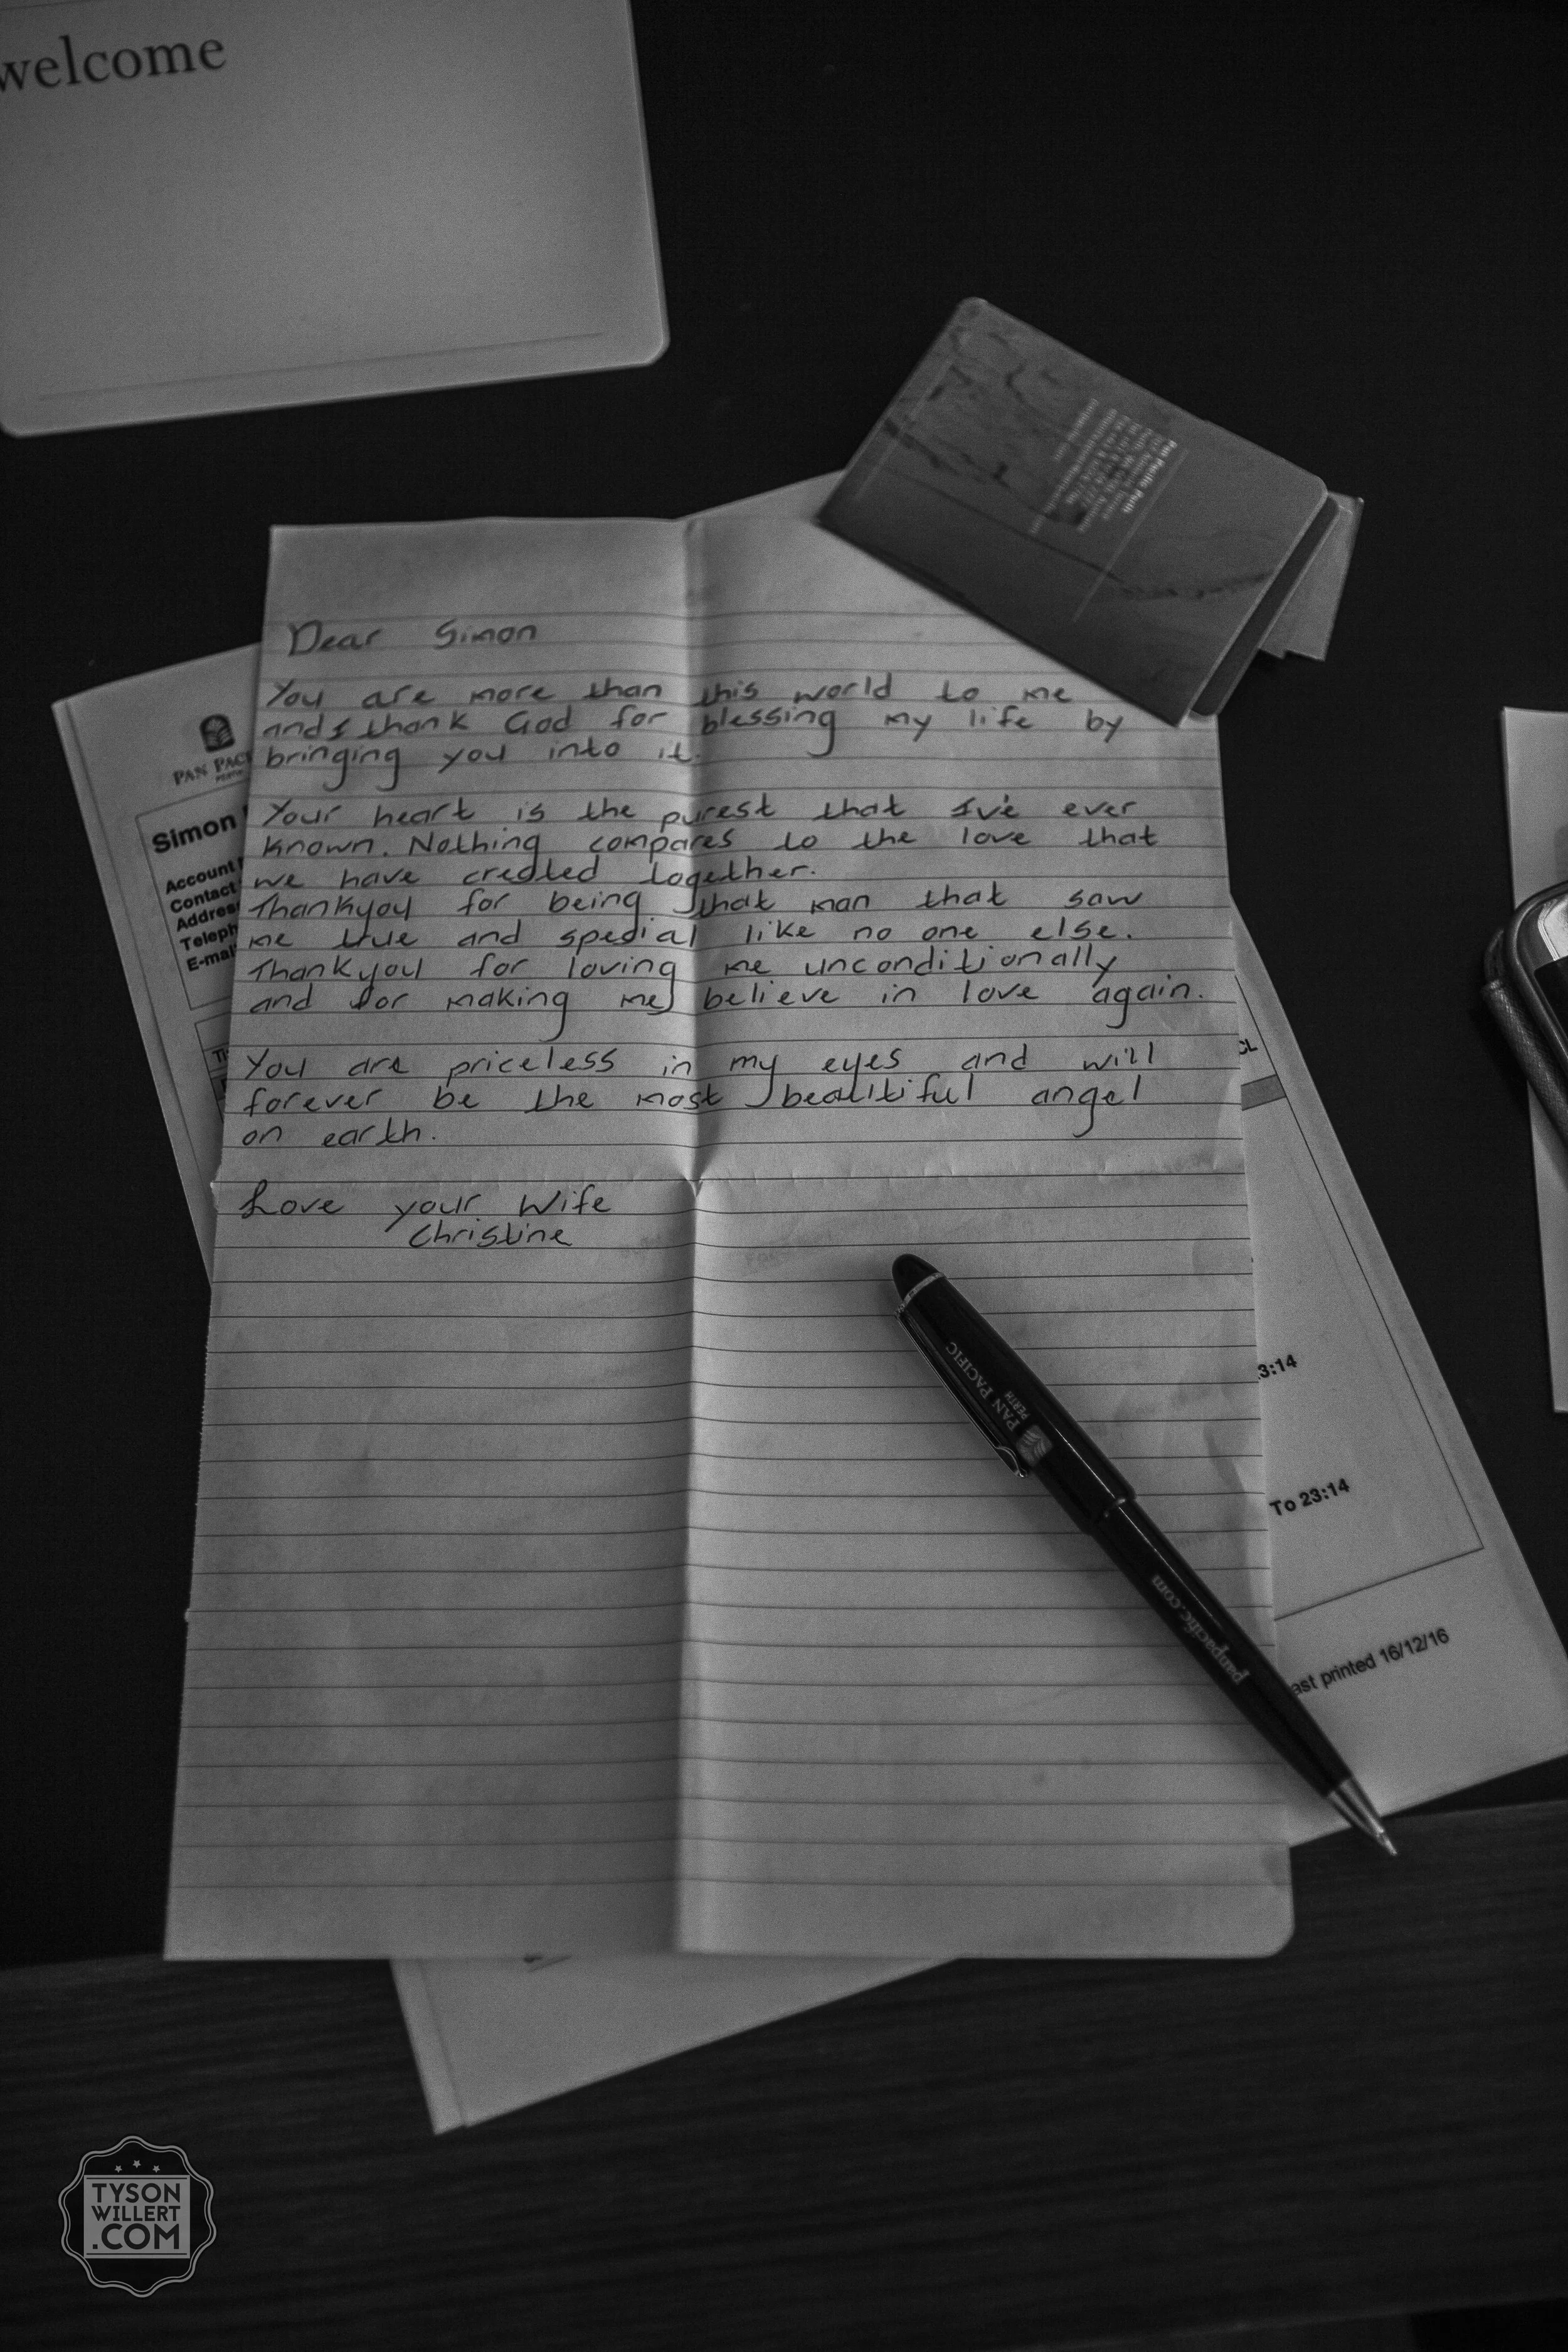 welcome
Pan Pacific Perth
Dear Simon
You are more than this world to me
and I thank God for blessing my life by
bringing you into it.
Your heart is the purest that I've ever
known. Nothing compares to the love that
we have created together.
Thankyou for being that man that saw
me true and special like no one else.
Thankyou for loving me unconditionally
and for making me believe in love again.
You are priceless in my eyes and will
forever be the most beautiful angel
on earth.
Love your Wife
Christine
PAN PACI
Simon
Account
Contact
Address
Teleph
E-mai
CL
3:14
To 23:14
ast printed 16/12/16
PAN PACIFIC
PERTH
panpacific.com
TYSON
WILLERT
.COM